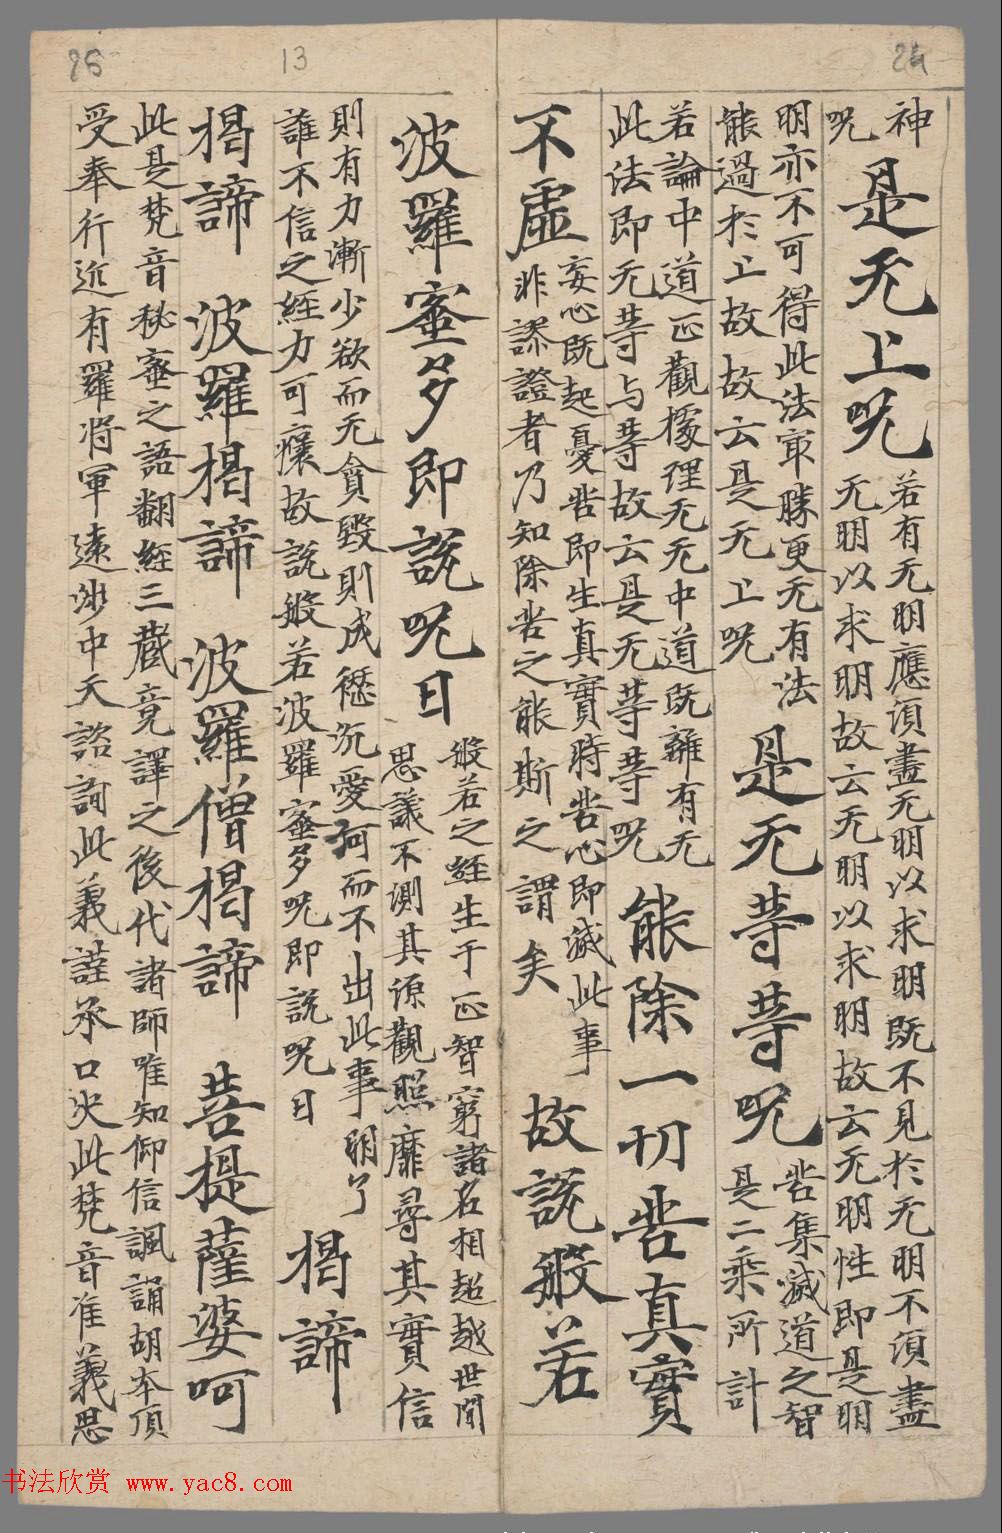 13
神
咒
是无上咒
若有无明應須盡无明以求明既不見於无明不須盡
无明以求明故云无明以求明故云无明性即是明
明亦不可得此法冣勝更无有法
能過於上故故云是无上咒
是无等等咒
苦集滅道之智
是二乘所計
若論中道正觀據理无无中道既離有无
此法即无等与等故云是无等等咒
能除一切苦真實
不虛
妄心既起憂苦即生真實時苦心即滅此事
非謬證者乃知除苦之能斯之謂矣
故說般若
波羅蜜多即說咒曰
般若之經生于正智窮諸名相超越世間
思議不測其源觀照靡尋其實信
則有力漸少欲而无貪毀則成沉愛河而不出此事明了
誰不信之經力可故說般若波羅蜜多咒即說咒曰
揭諦
揭諦 波羅揭諦 波羅僧揭諦 菩提薩婆呵
此是梵音秘密之語翻經三藏竟譯之後代諸師唯知仰信諷誦胡本頂
受奉行近有羅將軍遠涉中天諮詢此義謹承口决此梵音准義思
书法欣赏 www.yac8.com